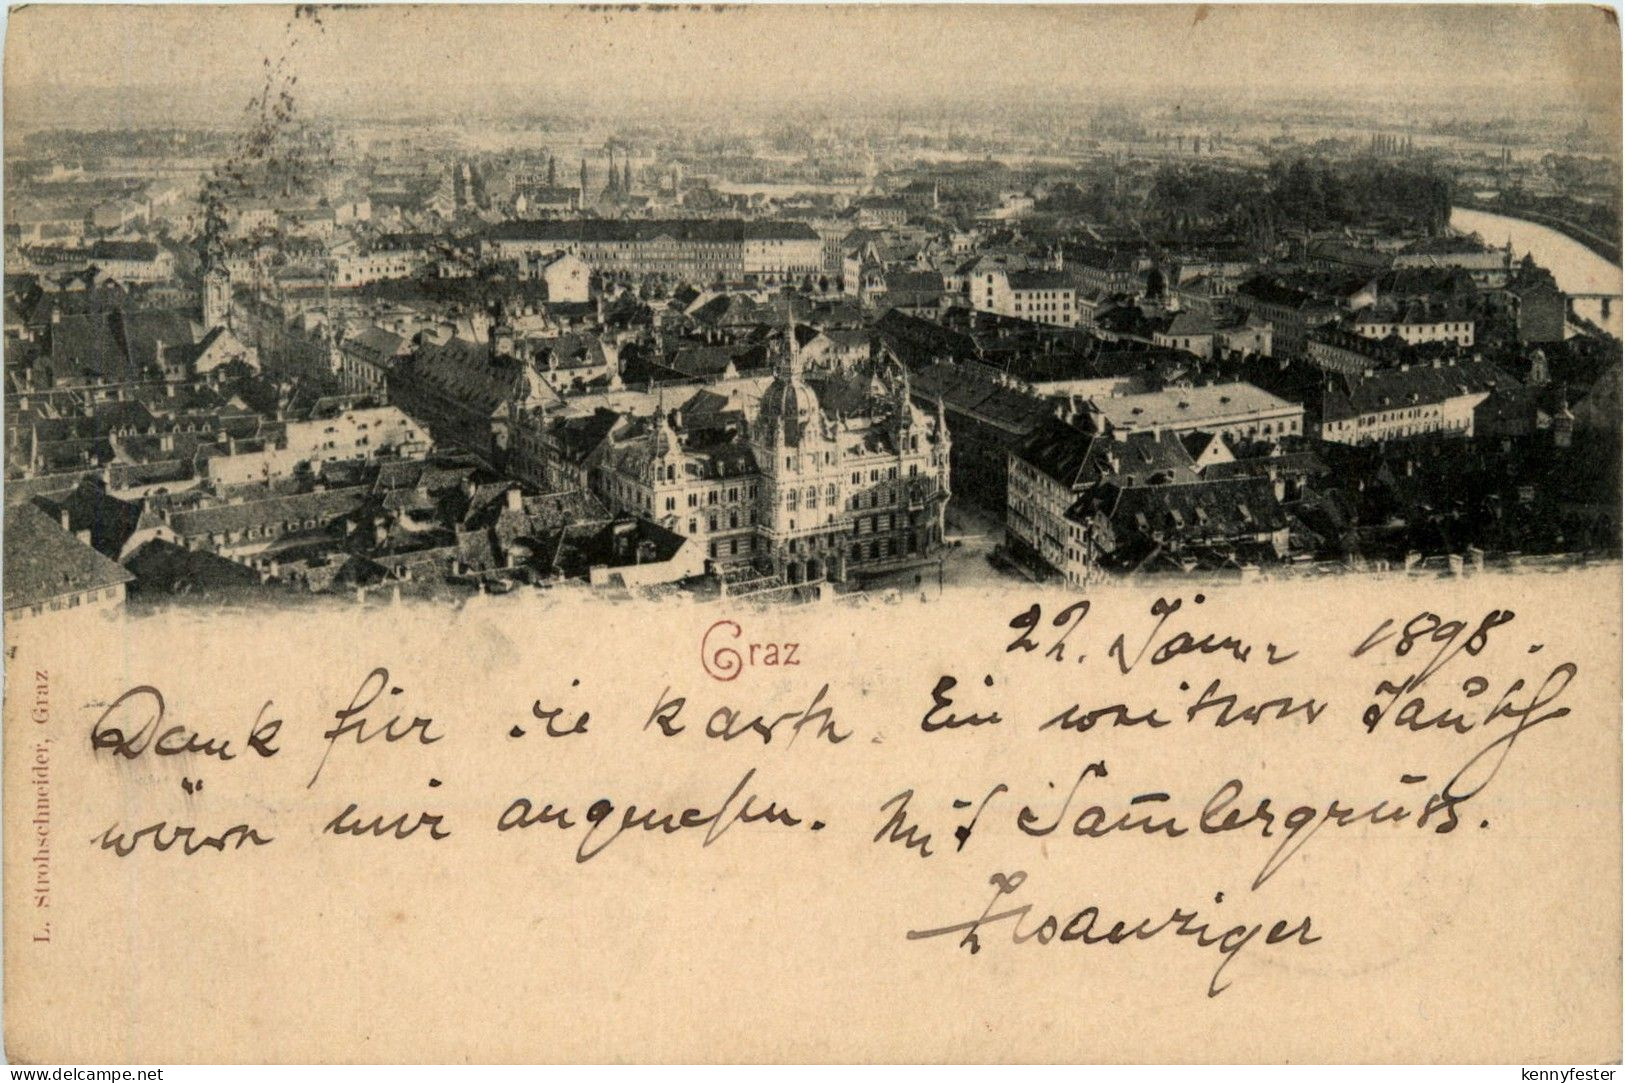 Graz
22. Jänner 1898.
Dank für die Karte. Ein weiterer Tausch
wäre mir angenehm. Mit Sammlergruss.
Zwanziger
L. Strohschneider, Graz
www.delcampe.net
kennyfester